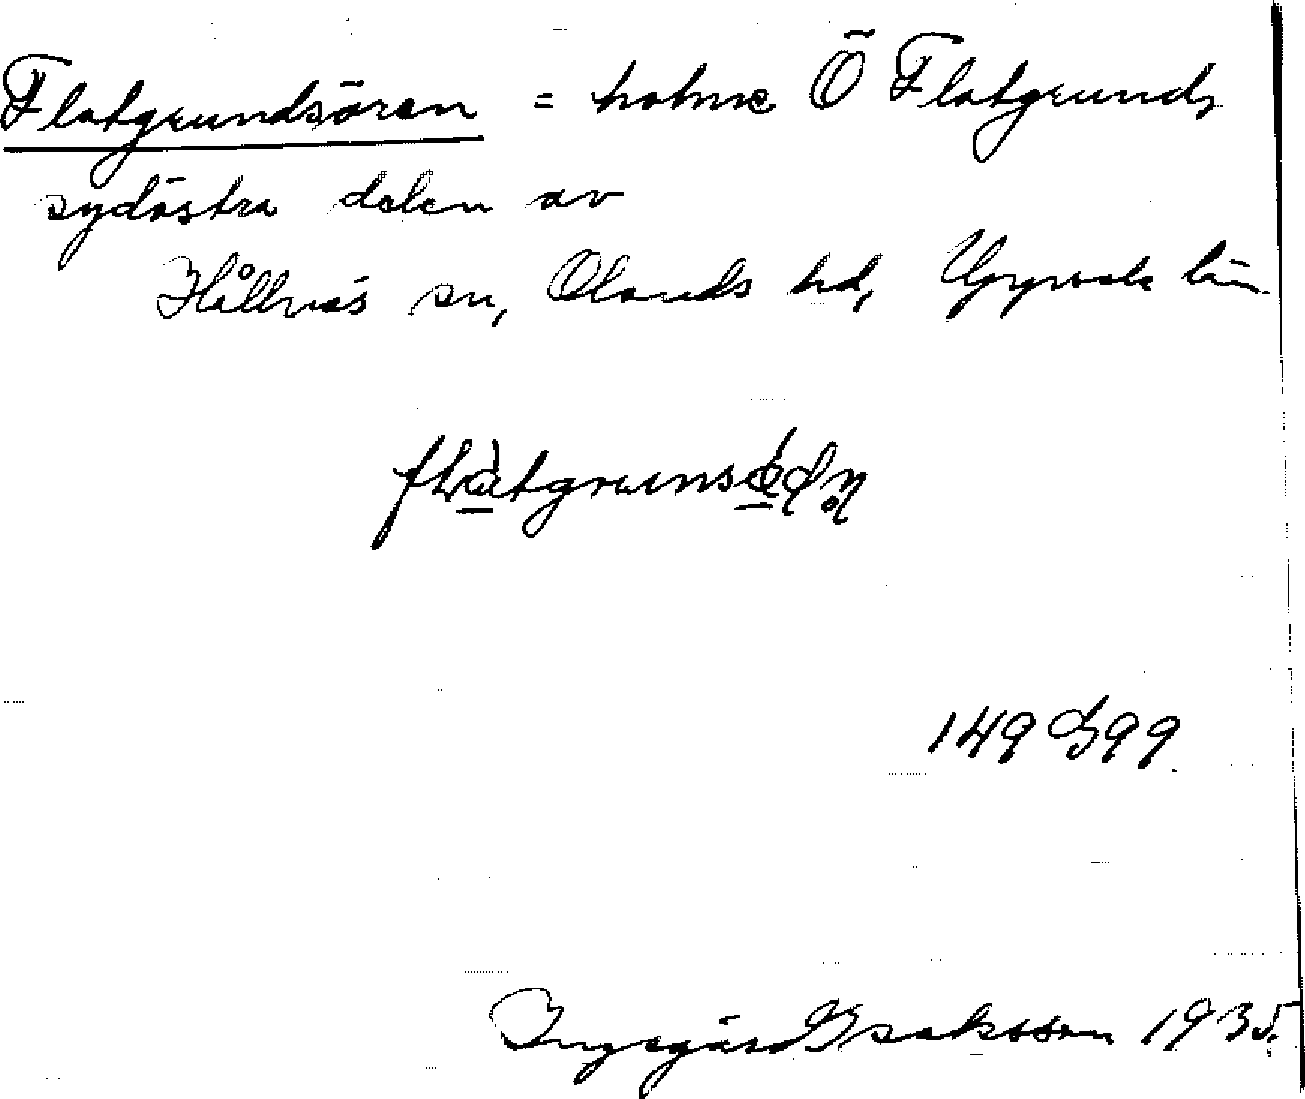 Flatgrundsören = holme Ö Flatgrund,
sydöstra delen av
Hållnäs sn, Olands hd, Uppsala län
149 G99
Ingegärd Isaksson 1935.